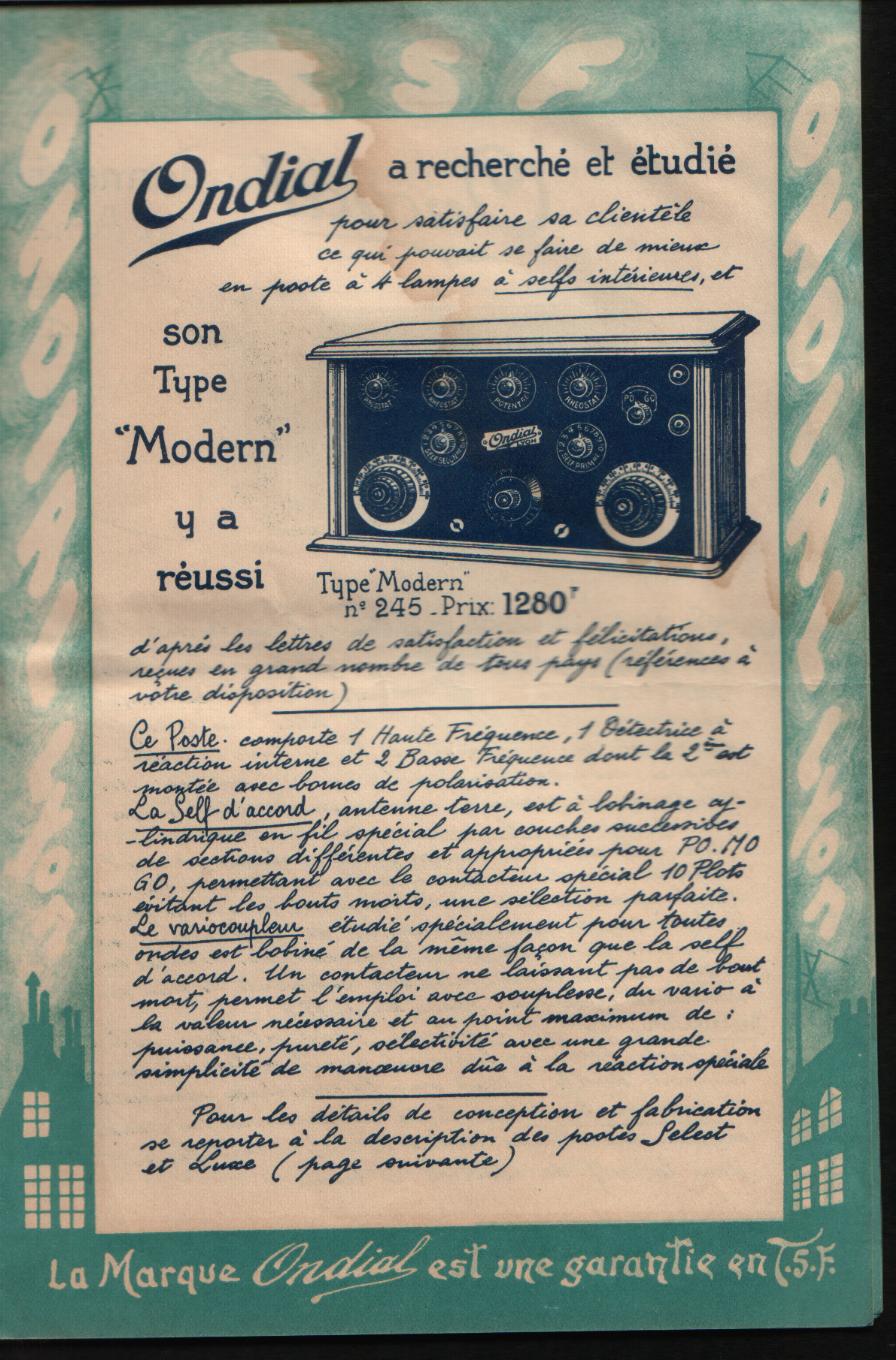 T S F
ONDIAL
Lyon
ONDIAL
Lyon
Ondial a recherché et étudié
pour satisfaire sa clientèle
ce qui pouvait se faire de mieux
en poste à 4 lampes à selfs intérieures, et
son
Type
"Modern"
y a
réussi
RHEOSTAT
RHEOSTAT
POTENT
RHEOSTAT
PO GO
SELF SECON
Ondial
LYON
SELF PRIM
Type "Modern"
nº 245 - Prix: 1280F
d'après les lettres de satisfaction et félicitations,
reçues en grand nombre de tous pays (références à
vôtre disposition)
Ce Poste. comporte 1 Haute Fréquence, 1 Détectrice à
réaction interne et 2 Basse Fréquence dont la 2me est
montée avec bornes de polarisation.
La Self d'accord, antenne terre, est à bobinage cy-
-lindrique en fil spécial par couches successives
de sections différentes et appropriées pour PO.MO
GO, permettant avec le contacteur spécial 10 Plots
évitant les bouts morts, une sélection parfaite.
Le variocoupleur étudié spécialement pour toutes
ondes est bobiné de la même façon que la self
d'accord. Un contacteur ne laissant pas de bout
mort, permet l'emploi avec souplesse, du vario à
la valeur nécessaire et au point maximum de :
puissance, pureté, sélectivité avec une grande
simplicité de manœuvre dûe à la réaction spéciale
Pour les détails de conception et fabrication
se reporter à la description des postes Select
et Luxe (page suivante)
La Marque Ondial est une garantie en T.S.F.